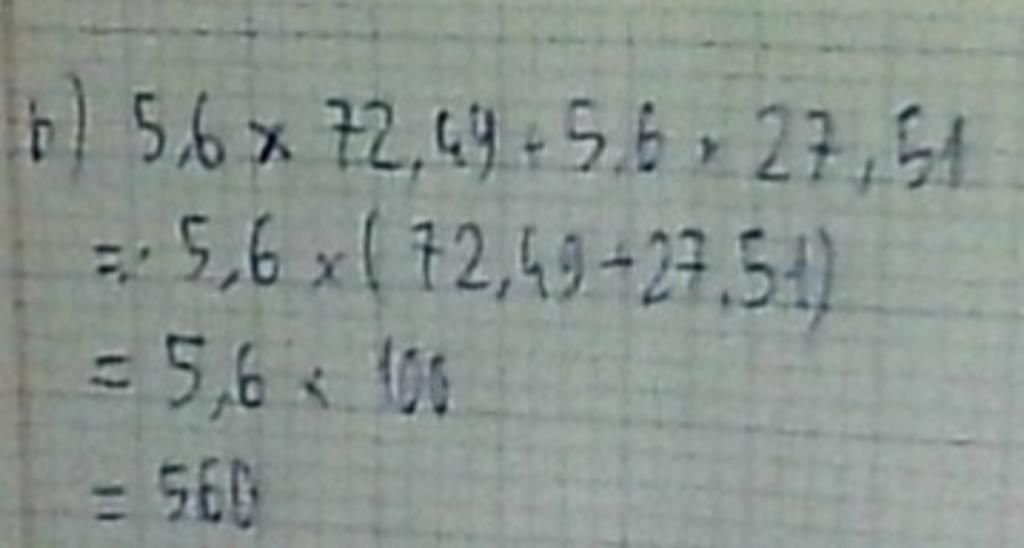 b) 5,6 x 72,49 + 5,6 x 27,51
= 5,6 x ( 72,49 + 27,51)
= 5,6 x 100
= 560